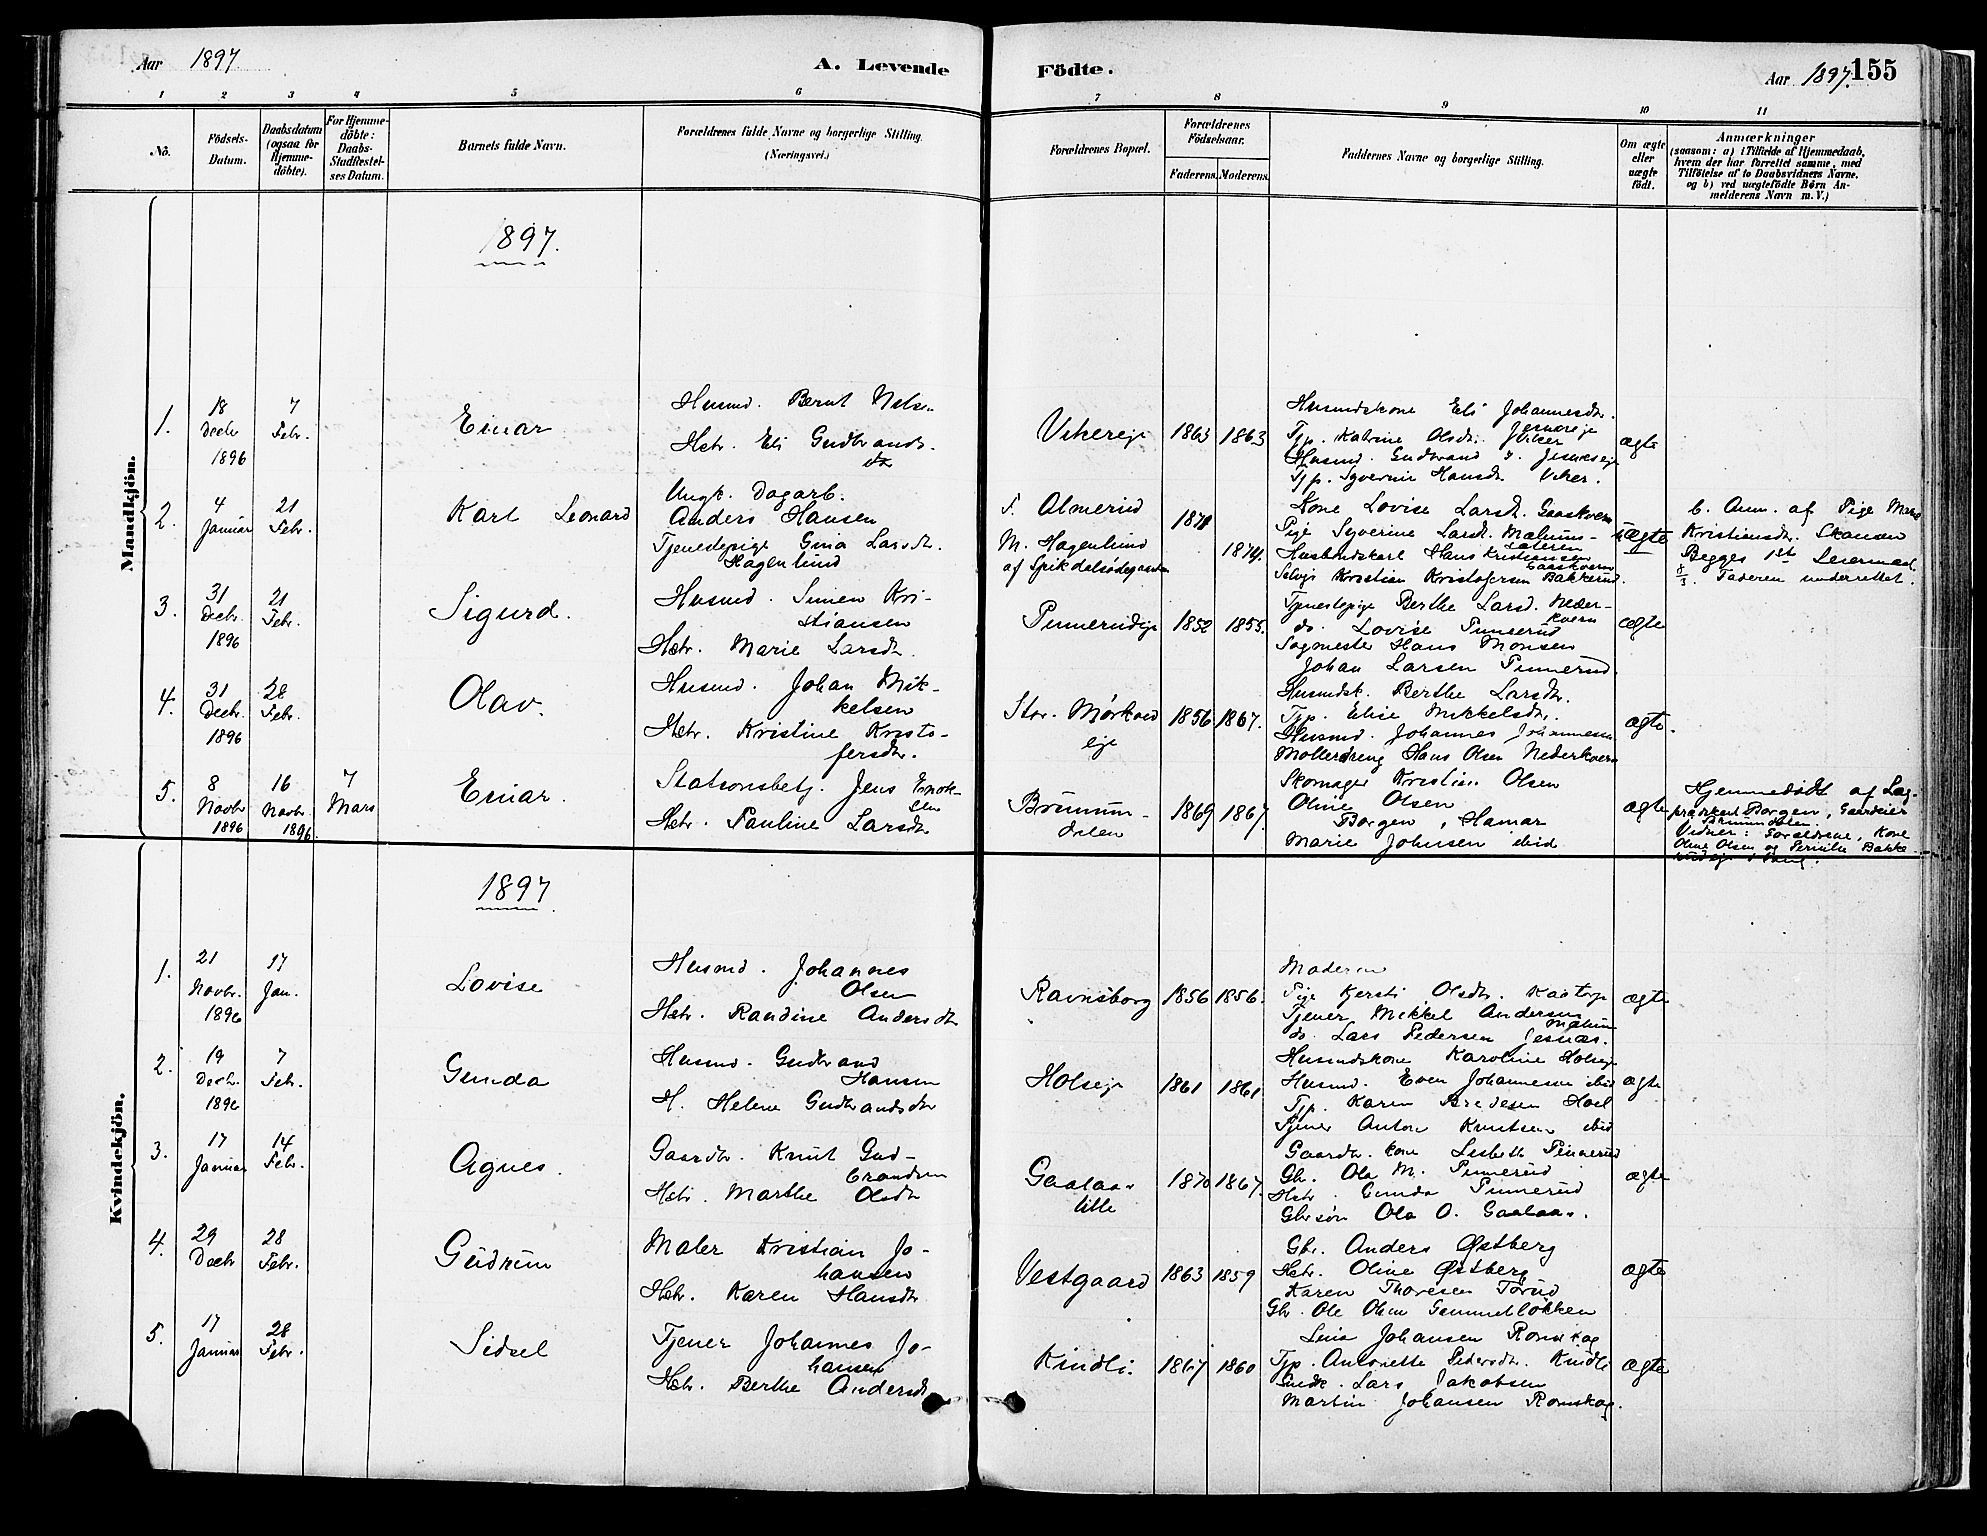 Aar 1897. A. Levende Födte. Aar 1897. 155
1 2 3 4 5 6 7 8 9 10 11
Nô.
Födsels-Datum.
Daabsdatum (ogsaa for Hjemmedöbte).
For Hjemmedöbte: Daabs-Stadfæstelses Datum.
Barnets fulde Navn.
Forældrenes fulde Navne og borgerlige Stilling.
(Næringsvei.)
Forældrenes Bopæl.
Forældrenes Födselsaar.
Faderens. Moderens.
Faddernes Navne og borgerlige Stilling.
Om ægte eller uægte födt.
Anmærkninger
(saasom: a) i Tilfælde af Hjemmedaab,
hvem der har forrettet samme, med
Tilföielse af to Daabsvidners Navne,
og b) ved uægtefödte Börn An-
melderens Navn m. V.)
Mandkjön.
1897.
1. 18 Decbr. 1896
7 Febr.
Einar
Husmd. Bernt Nilsen
Hstr. Eli Gudbrands-
dtr
Vikereje 1863 1863
Husmdskone Eli Johannesdtr.
Tjp. Katrine Olsdtr. Viker
Husmd. Gudbrand
Tjp. Syverine Hansdtr Viker.
ægte
2. 4 Januar
21 Febr.
Karl Leonard
Ungk. Dagarb.
Anders Hansen
Tjenestepige Gina Larsdtr.
Hagenlund
F. Almerud
M. Hagenlund
af Spikdalsödegaarden
1871 1874.
Kone Lovise Larsdtr. Gaaskvern
Pige Syverine Larsdtr. Mælums-
sæteren
Husbondskarl Hans Kristiansen
Gaaskvern
Selvej. Kristian Kristofersen Bakkerud.
uægte
b. Anm. af Pige Marie
Kristiansdtr. Skansen
Begges 1st Leiermaal.
8/3. Faderen underrettet.
3. 31 Decbr. 1896
21 Febr.
Sigurd.
Husmd. Simen Kri-
stiansen
Hstr. Marie Larsdtr.
Pinnerudeje 1852 1855.
Tjenestepige Berthe Larsd. Neder-
kvern
do. Lovise Pinnerud
Sagmester Hans Monsen
Johan Larsen Pinnerud.
ægte
4. 31 Decbr. 1896
28 Febr.
Olav.
Husmd. Johan Mik-
kelsen
Hstr. Kristine Kristo-
fersdtr.
Stor. Mørkved
eje
1856 1867.
Husmdsk. Berthe Larsdtr.
Tjp. Elise Mikkelsdtr.
Husmd. Johannes Johannesen
Møllerdreng Hans Olsen Nederkvern
ægte.
5. 8 Novbr. 1896
16 Novbr. 1896
7 Mars
Einar.
Stationsbetj. Jens Enok-
sen
Hstr. Pauline Larsdtr
Brumun-
dalen
1869 1867.
Skomager Kristian Olsen
Oline Olsen
Borgen, Hamar
Marie Johnsen ibid
ægte
Hjemmedøbt af Læg-
prædikant Borgen, Gaardeier
Brumundalen
Vidner: Forældrene, Kone
Oline Olsen og Pernille Bakke-
Kvindekjön.
1897.
1. 21 Novbr. 1896
17 Jan.
Lovise
Husmd. Johannes
Olsen
Hstr. Randine Andersdtr
Ravnsborg 1856 1856.
Moderen
Pige Kersti Olsdtr. Kaatorp
Tjener Mikkel Andersen
Mælum
do. Lars Pedersen Jesnæs.
ægte
2. 19 Decbr. 1896
7 Febr.
Gunda
Husmd. Gudbrand
Hansen
H. Helene Gudbrandsdtr
Holseje 1861 1861
Husmdskone Karoline Holseje
Husmd. Even Johannesen ibid
Tjp. Karen Bredesen Hoel
Tjener Anton Knutsen ibid
ægte
3. 17 Januar
14 Febr.
Agnes.
Gaardbr. Knut Gud-
brandsen
Hstr. Marthe Olsdtr
Gaalaas
lille
1870 1867.
Gaardbr. kone Lisbeth Pinnerud
Gbr. Ole M. Pinnerud
Hstr. Gunda Pinnerud
Gbrsøn Ole O. Gaalaas.
ægte
4. 29 Decbr
28 Febr.
Gudrun
Maler Kristian Jo-
hansen
Hstr. Karen Hansdtr
Vestgaard 1863 1859
Gbr. Anders Østberg
Hstr. Oline Østberg
Karen Thoresen Torud
Gbr. Ole Olsen Gammelløkken
ægte
5. 17 Januar
28 Febr.
Sidsel
Tjener Johannes Jo-
hansen
Hstr. Berthe Andersdtr
Kindli. 1867 1860
Lina Johansen Romskog
Tjp. Antonette Pedersdtr. Kindli
Lars Jakobsen
Martin Johansen Romskog.
ægte